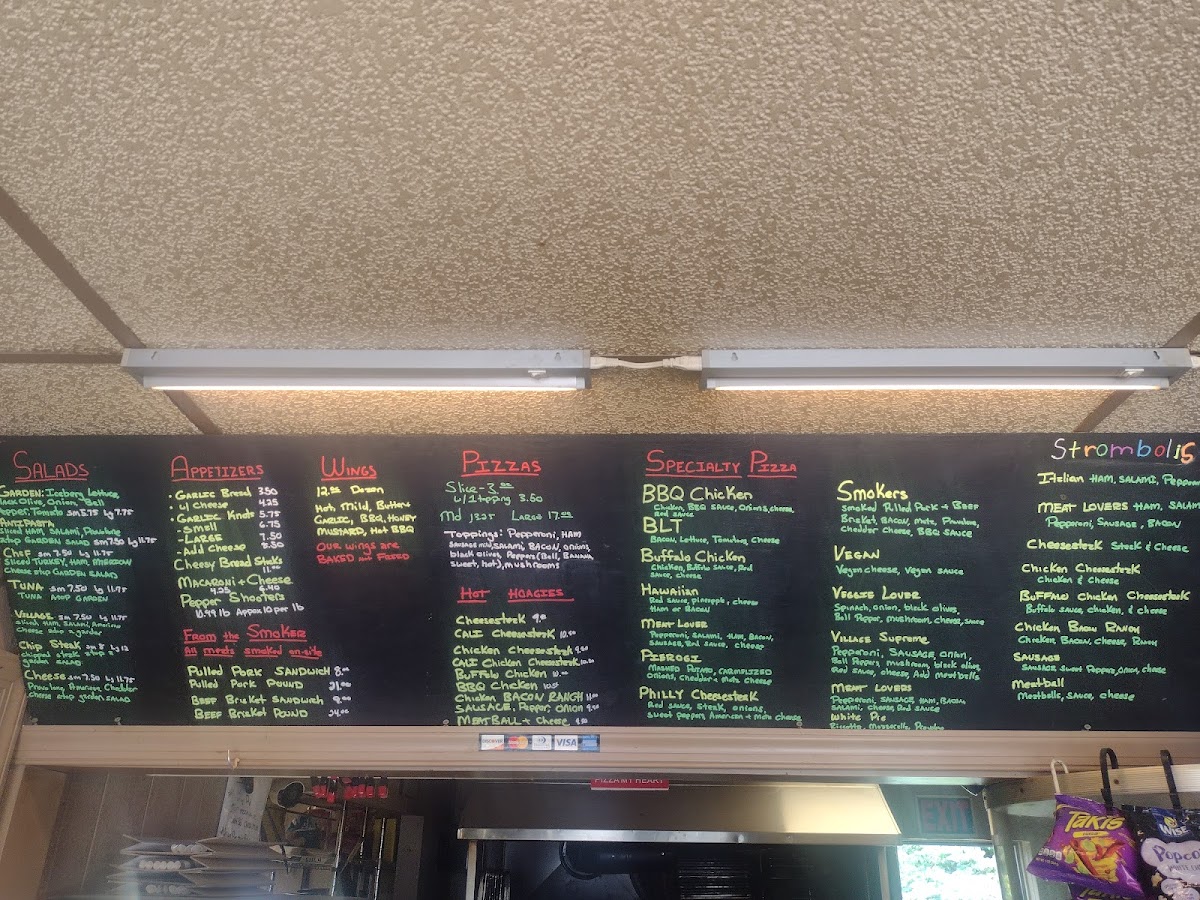 SALADS
GARDEN: Iceberg Lettuce,
Black Olive, Onion, Bell
Pepper, Tomato sm 5.75 Lg 7.75
ANTIPASTA
Sliced HAM, SALAMI, Provolone
atop GARDEN SALAD sm 7.50 lg 11.75
Chef sm 7.50 Lg 11.75
Sliced TURKEY, HAM, AMERICAN
Cheese atop GARDEN SALAD
TUNA sm 7.50 lg 11.75
TUNA Atop GARDEN
VILLAGE sm 7.50 Lg 11.75
Sliced HAM, SALAMI, American
Cheese atop a garden
Chip Steak sm 8 lg 12
chipped steak atop a
garden SALAD
Cheese sm 7.50 Lg 11.75
Provolone, American, Cheddar
Cheese atop garden SALAD
APPETIZERS
• GARLIC Bread 3.50
• w/ Cheese 4.25
• GARLIC Knots 5.75
- Small 6.75
- LARGE 7.50
- Add Cheese
Cheesy Bread Sticks
11.00
MACARONI + Cheese
4.25
Pepper Shooters
10.99 lb Appox 10 per lb
FROM the SMOKER
All meats smoked on-site
Pulled Pork SANDWICH 8.00
Pulled Pork POUND 21.00
BEEF Brisket SANDWICH 9.00
BEEF Brisket POUND 24.00
WINGS
12.00 Dozen
Hot, Mild, Butter +
GARLIC, BBQ, HONEY
MUSTARD, Hot BBQ
OUR Wings are
BAKED not FRIED
PIZZAS
Slice - 3.00
w/ 1 topping 3.50
Md 13.25 Large 17.00
Toppings: Pepperoni, HAM
SAUSAGE, SALAMI, BACON, onions,
black olives, Peppers (Bell, BANANA,
sweet, hot), mushrooms
HOT HOAGIES
Cheesesteak 9.00
CALI Cheesesteak 10.00
Chicken Cheesesteak 9.00
CALI Chicken Cheesesteak
Buffalo Chicken 10.00
BBQ Chicken
Chicken BACON RANCH 11.00
SAUSAGE, Pepper, Onion 9.00
MEATBALL + Cheese
SPECIALTY PIZZA
BBQ Chicken
Chicken, BBQ SAUCE, Onions, cheese,
Red sauce
BLT
BACON, Lettuce, Tomatoes, Cheese
Buffalo Chicken
Chicken, Buffalo SAUCE, Red
SAUCE, Cheese
HAWAIIAN
Red SAUCE, pineapple, cheese
HAM or BACON
MEAT LOVER
Pepperoni, SALAMI, HAM, BACON,
SAUSAGE, Red SAUCE, cheese
PIEROGI
MASHED POTATO, CARAMELIZED
ONIONS, Cheddar + Mozz Cheese
PHILLY Cheesesteak
Red SAUCE, steak, onions,
sweet pepper, American + Mozz cheese
Smokers
Smoked Pulled Pork + BEEF
Brisket, BACON, Mozz, Provolone,
Cheddar Cheese, BBQ SAUCE
VEGAN
Vegan cheese, Vegan SAUCE
VEGGIE LOVER
Spinach, onion, black olives,
Bell Pepper, mushroom, cheese, SAUCE
VILLAGE Supreme
Pepperoni, SAUSAGE, onion,
Bell Peppers, mushroom, black olive
Red SAUCE, cheese, Add meatballs
MEAT LOVERS
Pepperoni, SAUSAGE, HAM, BACON,
SALAMI, Cheese, Red SAUCE
White Pie
Ricotta, Mozzarella, Provolone
Strombolis
Italian HAM, SALAMI, Pepperoni
MEAT LOVERS HAM, SALAMI
Pepperoni, SAUSAGE, BACON
Cheesesteak Steak & Cheese
Chicken Cheesesteak
Chicken & Cheese
BUFFALO Chicken Cheesesteak
Buffalo sauce, chicken, & cheese
Chicken BACON RANCH
Chicken, BACON, cheese, RANCH
SAUSAGE
SAUSAGE, Sweet Peppers, Onion, cheese
Meatball
Meatballs, SAUCE, cheese
DISCOVER
VISA
PIZZA MY HEART
EXIT
Takis
WISE
Popcorn